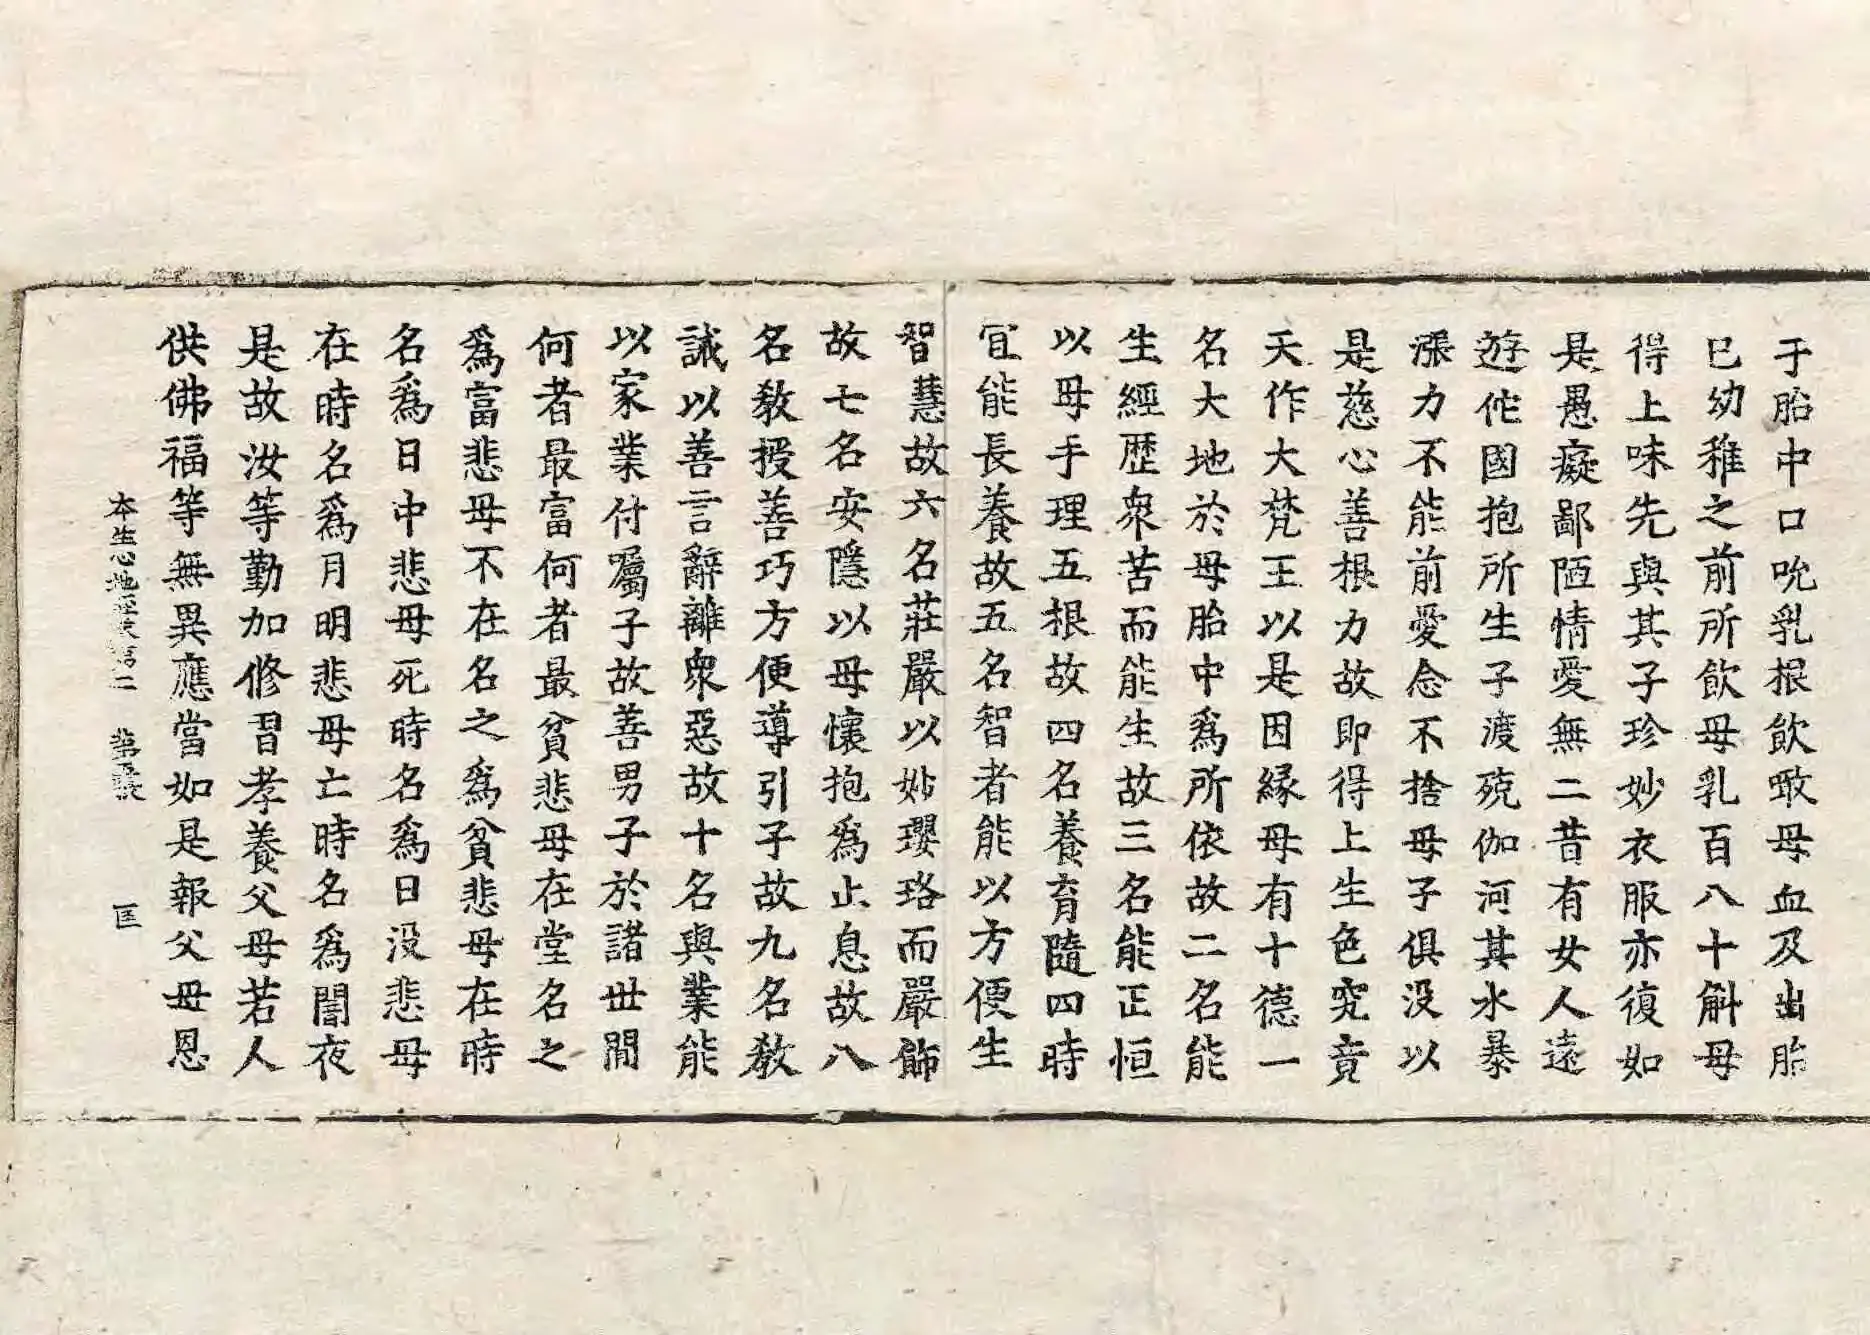 于胎中口吮乳根飲噉母血及出胎
已幼稚之前所飲母乳百八十斛母
得上味先與其子珍妙衣服亦復如
是愚癡鄙陋情愛無二昔有女人遠
遊佗國抱所生子渡殑伽河其水暴
漲力不能前愛念不捨母子俱没以
是慈心善根力故即得上生色究竟
天作大梵王以是因縁母有十德一
名大地於母胎中爲所依故二名能
生經歷衆苦而能生故三名能正恒
以母手理五根故四名養育隨四時
宜能長養故五名智者能以方便生
智慧故六名莊嚴以妙瓔珞而嚴飾
故七名安隱以母懷抱爲止息故八
名教授善巧方便導引子故九名教
誡以善言辭離衆惡故十名與業能
以家業付囑子故善男子於諸世間
何者最富何者最貧悲母在堂名之
爲富悲母不在名之爲貧悲母在時
名爲日中悲母死時名爲日没悲母
在時名爲月明悲母亡時名爲闇夜
是故汝等勤加修習孝養父母若人
供佛福等無異應當如是報父母恩
本生心地經 第二 匡